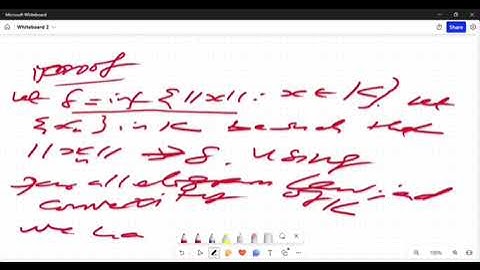 Microsoft Whiteboard
Whiteboard 2
Share
proof
let δ = inf {||x|| : x ∈ K}. let
{xn} in K be such that
||xn|| → δ. using
parallelogram law and
convexity of K
we ha
100%